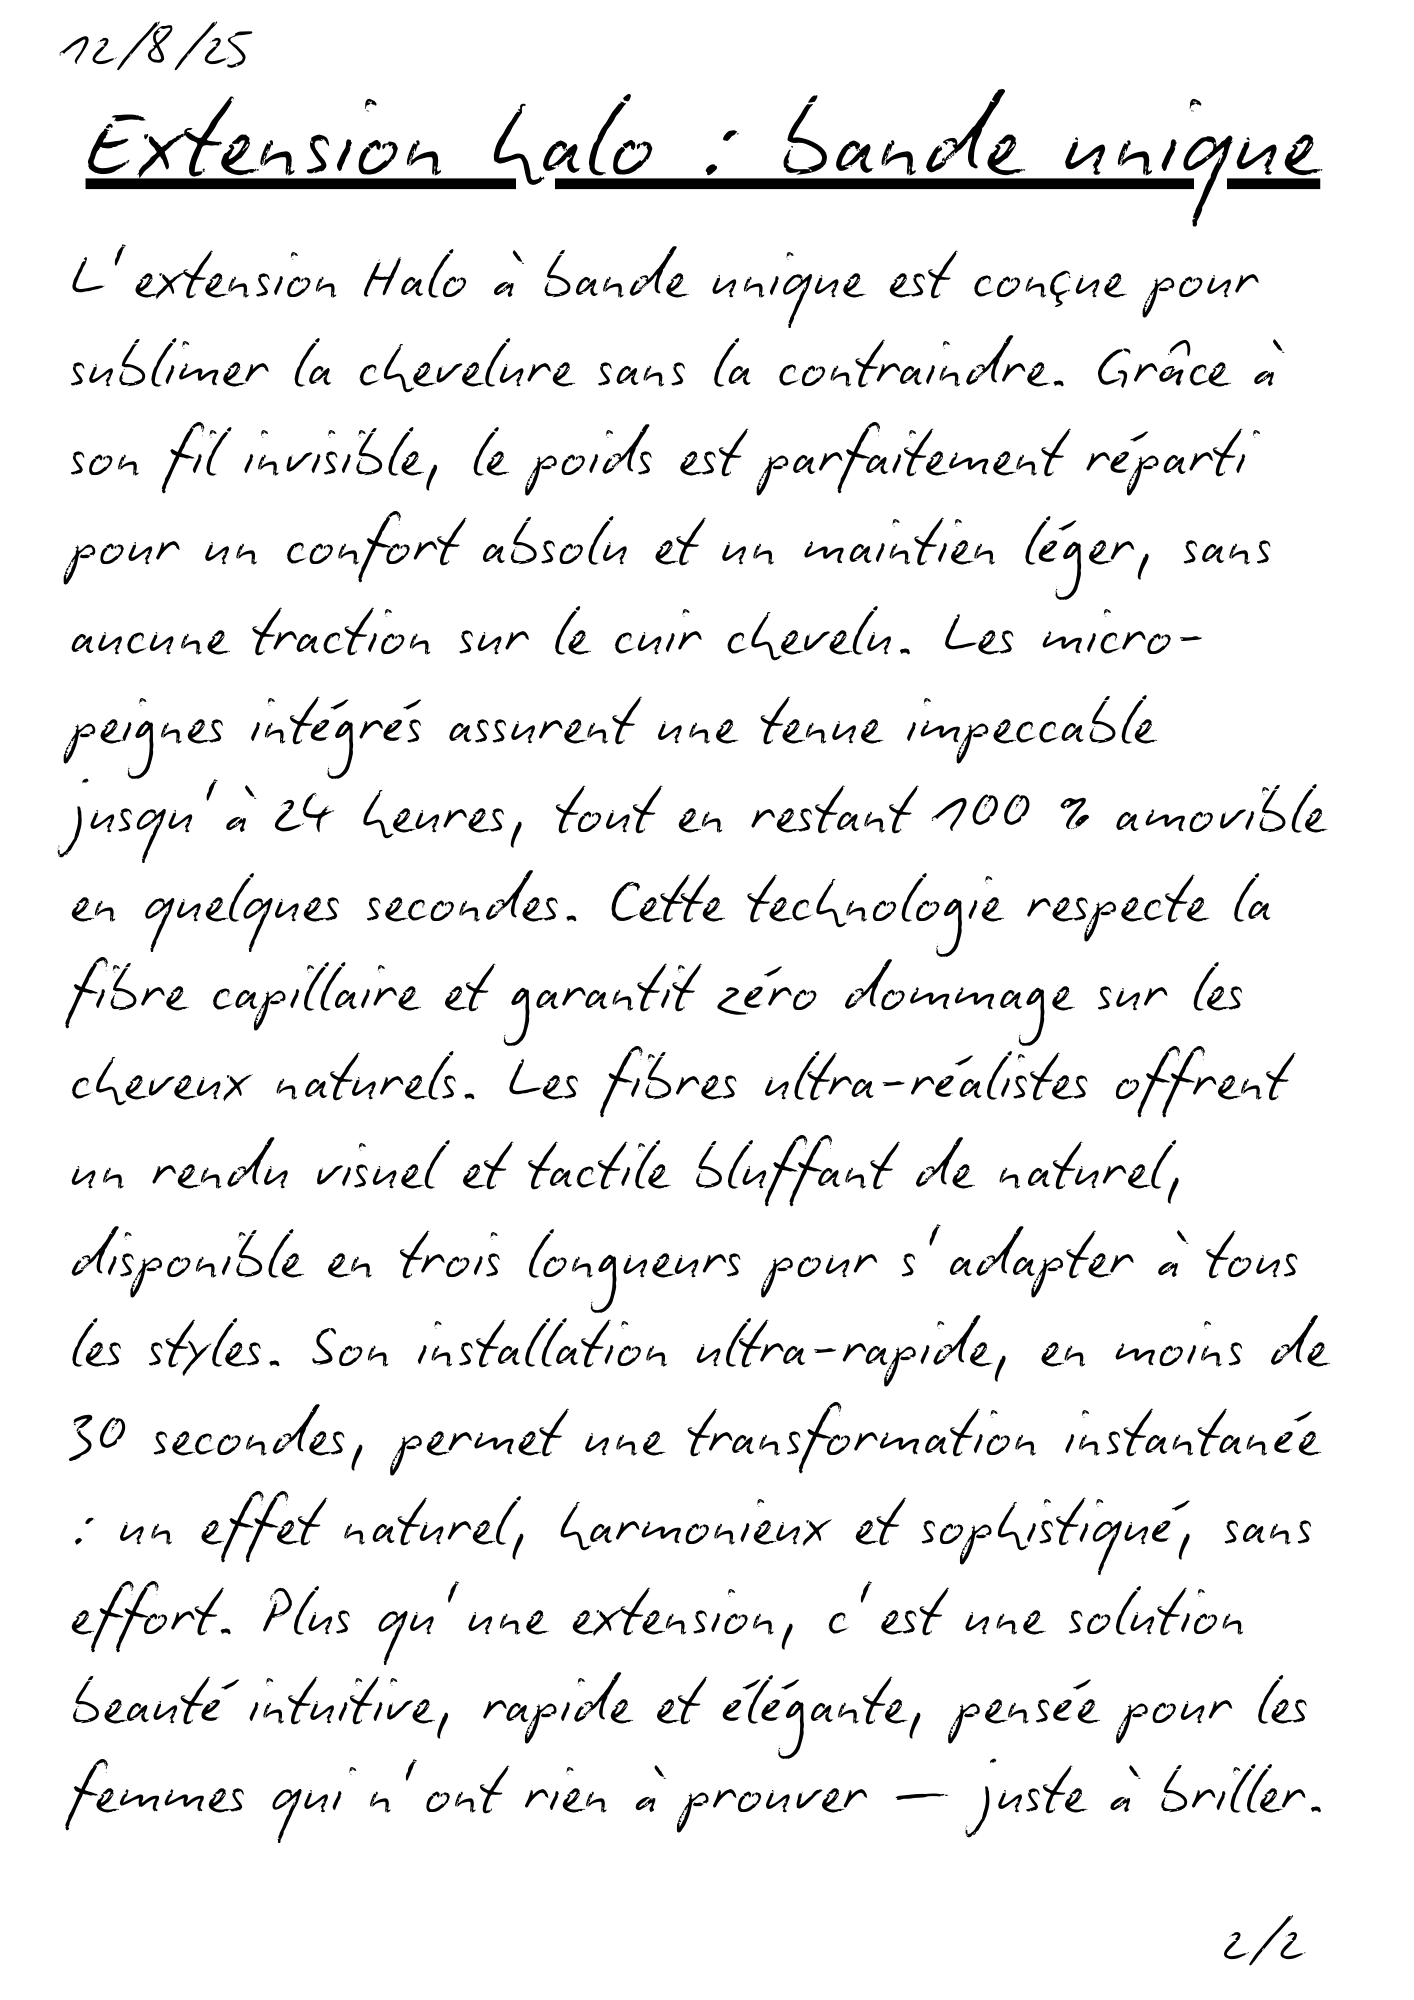 12/8/25
Extension halo : bande unique
L'extension Halo à bande unique est conçue pour
sublimer la chevelure sans la contraindre. Grâce à
son fil invisible, le poids est parfaitement réparti
pour un confort absolu et un maintien léger, sans
aucune traction sur le cuir chevelu. Les micro-
peignes intégrés assurent une tenue impeccable
jusqu'à 24 heures, tout en restant 100 % amovible
en quelques secondes. Cette technologie respecte la
fibre capillaire et garantit zéro dommage sur les
cheveux naturels. Les fibres ultra-réalistes offrent
un rendu visuel et tactile bluffant de naturel,
disponible en trois longueurs pour s'adapter à tous
les styles. Son installation ultra-rapide, en moins de
30 secondes, permet une transformation instantanée
: un effet naturel, harmonieux et sophistiqué, sans
effort. Plus qu'une extension, c'est une solution
beauté intuitive, rapide et élégante, pensée pour les
femmes qui n'ont rien à prouver — juste à briller.
2/2